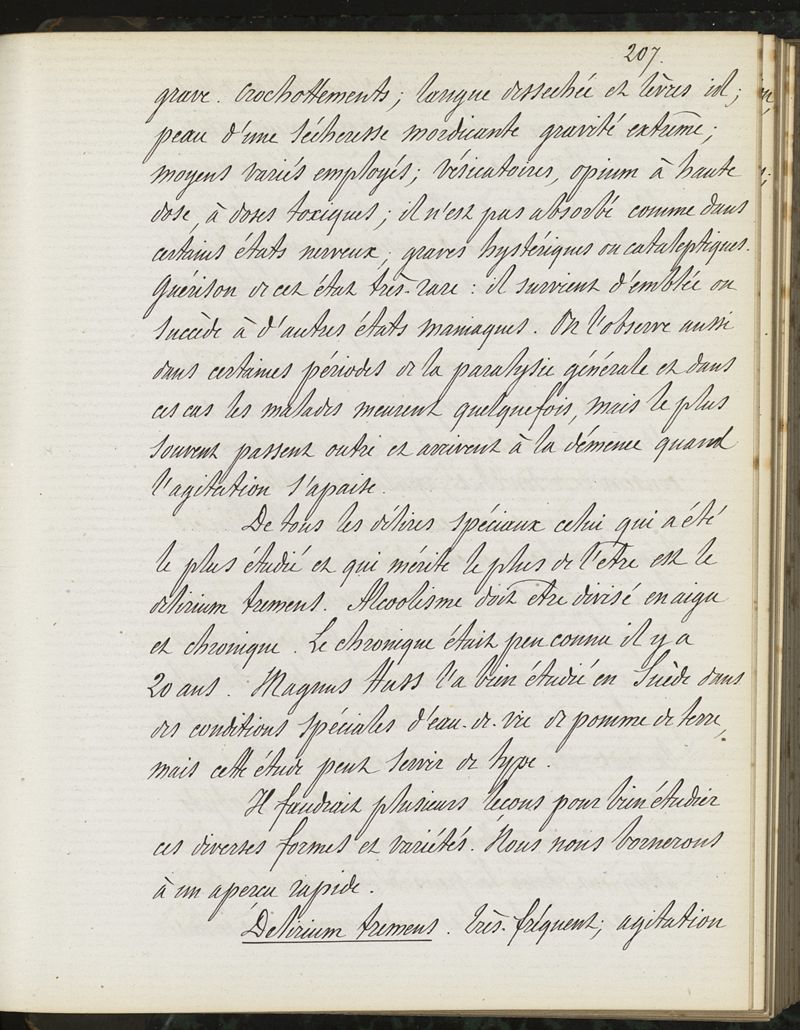 207.
grave. Crachottements; langue desséchée et lèvres id;
peau d'une sécheresse mordicante gravité extrême;
moyens variés employés; vésicatoires, opium à haute
dose, à doses toxiques; il n'est pas absorbé comme dans
certains états nerveux, graves hystériques ou cataleptiques.
Guérison de cet état très-rare : il survient d'emblée ou
succède à d'autres états maniaques. On l'observe aussi
dans certaines périodes de la paralysie générale et dans
ces cas les malades meurent quelquefois, mais le plus
souvent passent outre et arrivent à la démence quand
l'agitation s'apaise.
De tous les délires spéciaux celui qui a été
le plus étudié et qui mérite le plus de l'être est le
delirium tremens. Alcoolisme doit être divisé en aigu
et chronique. Le chronique était peu connu il y a
20 ans. Magnus Huss l'a bien étudié en Suède dans
des conditions spéciales d'eau-de-vie de pomme de terre,
mais cette étude peut servir de type.
Il faudrait plusieurs leçons pour bien étudier
ces diverses formes et variétés. Nous nous bornerons
à un aperçu rapide.
Delirium tremens. Très-fréquent; agitation